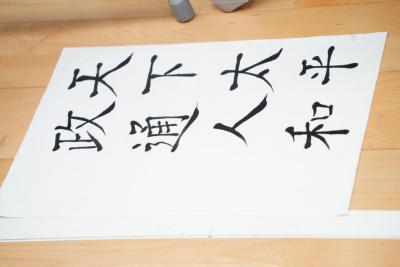 天下太平
政通人和